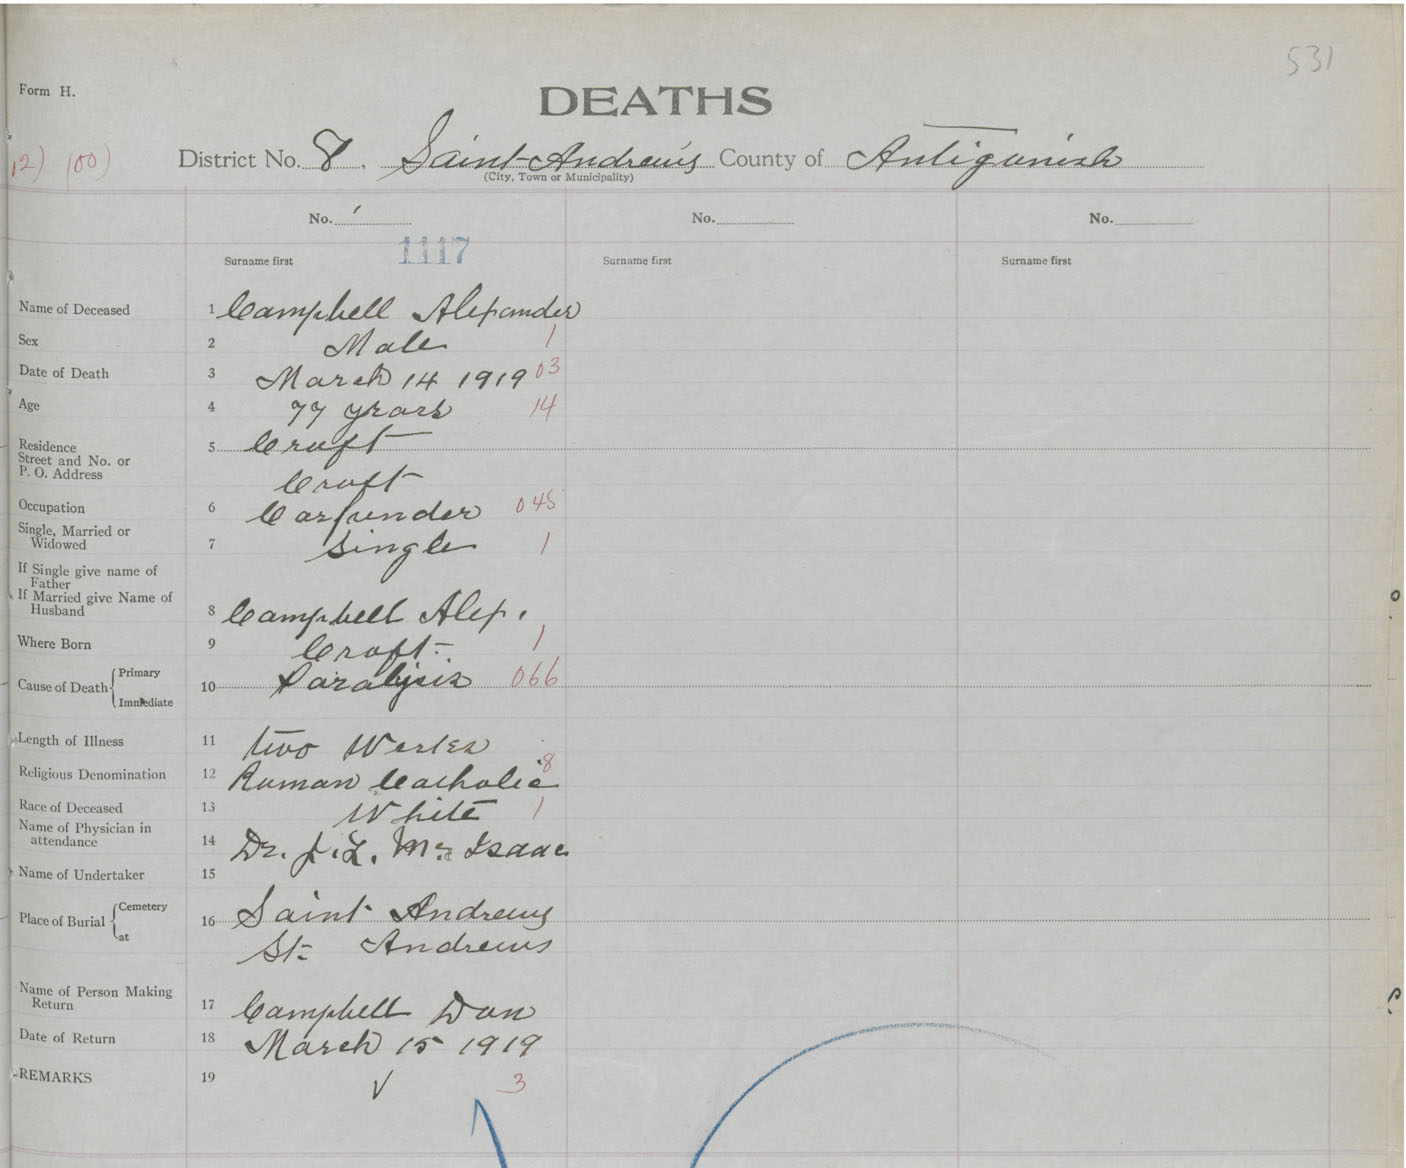 531
Form H.
DEATHS
12) (00)
District No. 8. Saint Andrew's County of Antigonish
(City, Town or Municipality)
No. 1 No. No.
1117
Surname first Surname first Surname first
Name of Deceased 1 Campbell Alexander
Sex 2 Male 1
Date of Death 3 March 14 1919 03
Age 4 77 years 14
Residence 5 Croft
Street and No. or
P. O. Address Croft
Occupation 6 Carpunder 045
Single, Married or
Widowed 7 Single 1
If Single give name of
Father
If Married give Name of
Husband 8 Campbell Alex.
Where Born 9 Croft 1
Cause of Death Primary 10 Paralysis 066
Immediate
Length of Illness 11 two Weeks
Religious Denomination 12 Roman Catholic 8
Race of Deceased 13 White 1
Name of Physician in
attendance 14 Dr. J. L. Mc Isaac
Name of Undertaker 15
Place of Burial Cemetery 16 Saint Andrews
at St. Andrews
Name of Person Making
Return 17 Campbell Dan
Date of Return 18 March 15 1919
REMARKS 19 3